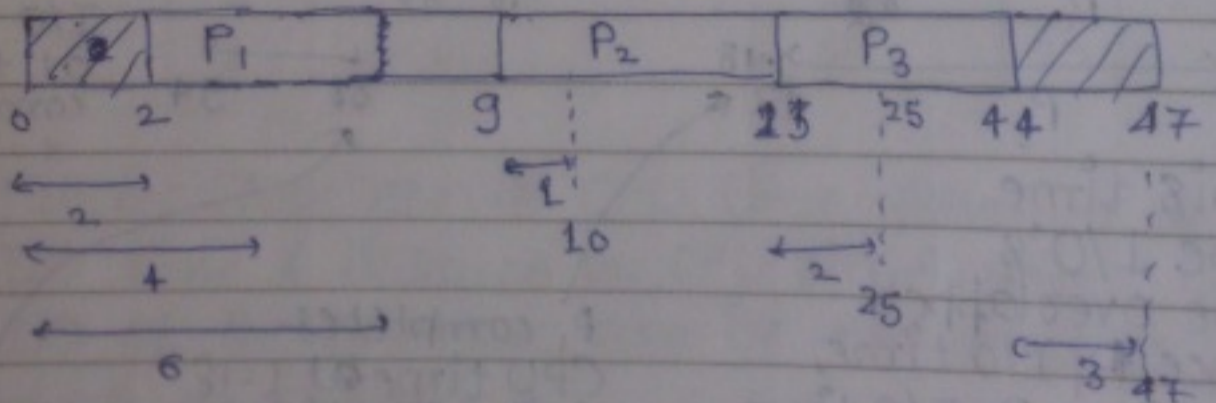 P1 P2 P3
0 2 9 23 25 44 47
2 1
4 10 2
25
6 3 47